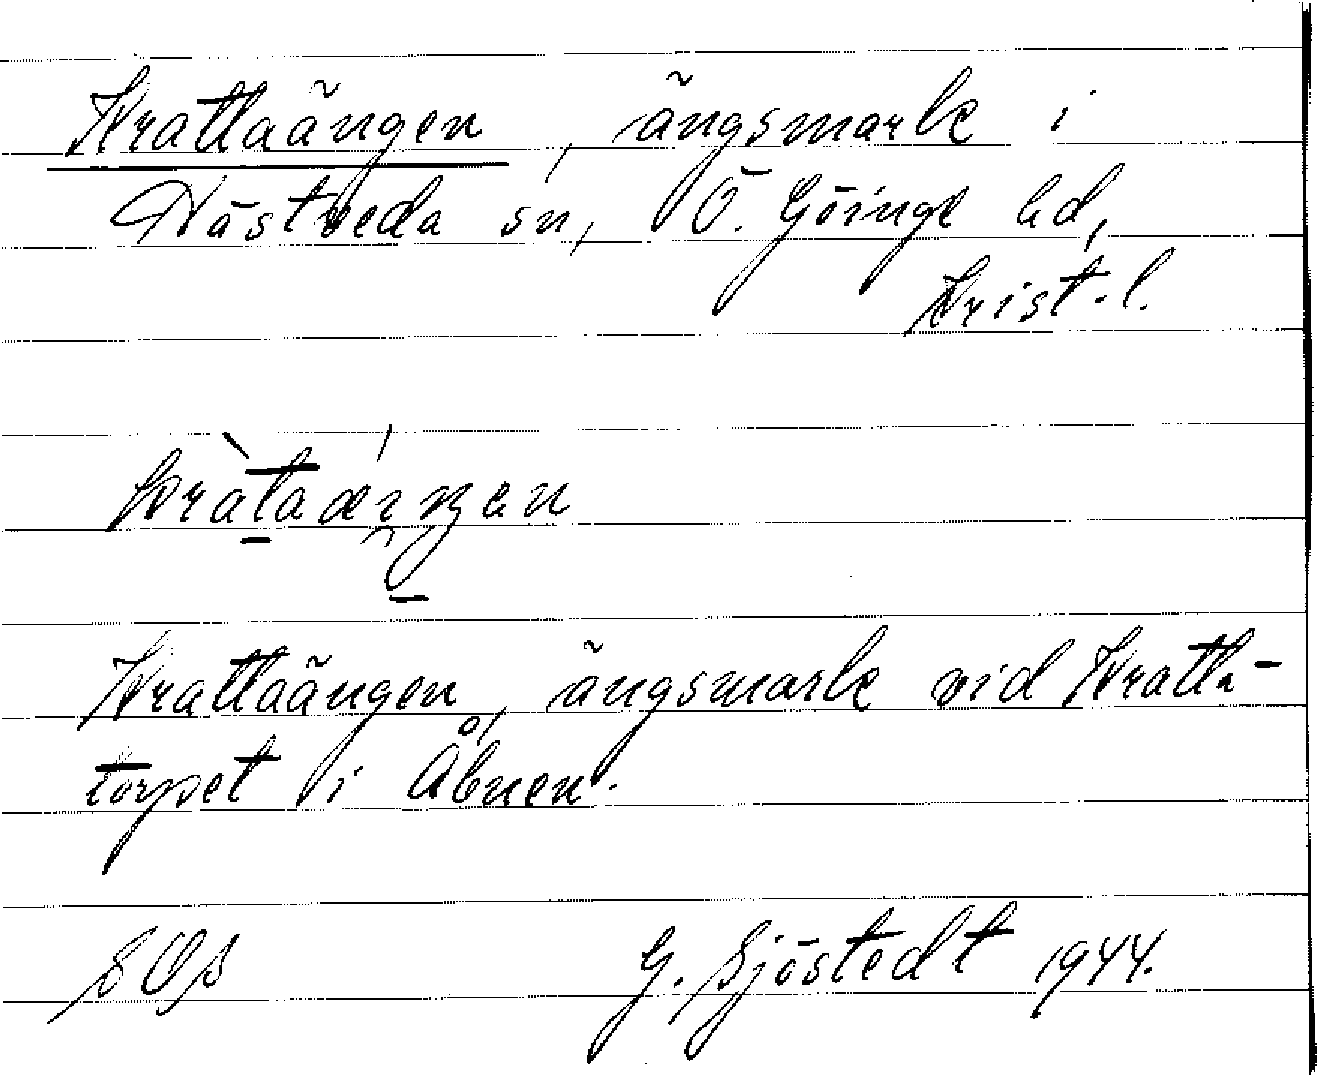 Krattaängen, ängsmark i
Hästveda sn, Ö. Göinge hd,
Krist.l.
Krattaängen, ängsmark vid Kratta-
torpet i Åbuen.
G. Sjöstedt 1944.